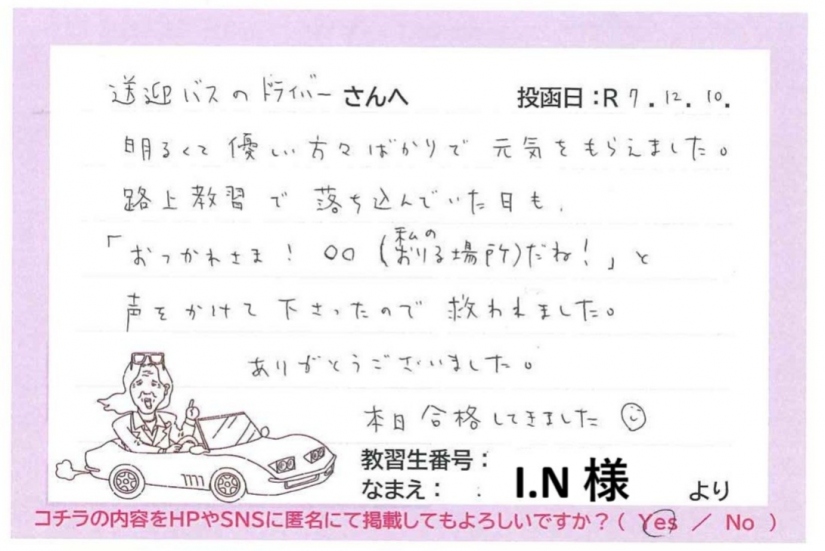 送迎バスのドライバーさんへ 投函日：R 7.12.10.
明るくて優しい方々ばかりで元気をもらえました。
路上教習で落ち込んでいた日も、
「おつかれさま！○○（私のおりる場所）だね！」と
声をかけて下さったので救われました。
ありがとうございました。
本日合格してきました☺
教習生番号：
なまえ： I.N 様 より
コチラの内容をHPやSNSに匿名にて掲載してもよろしいですか？（ Yes ／ No ）